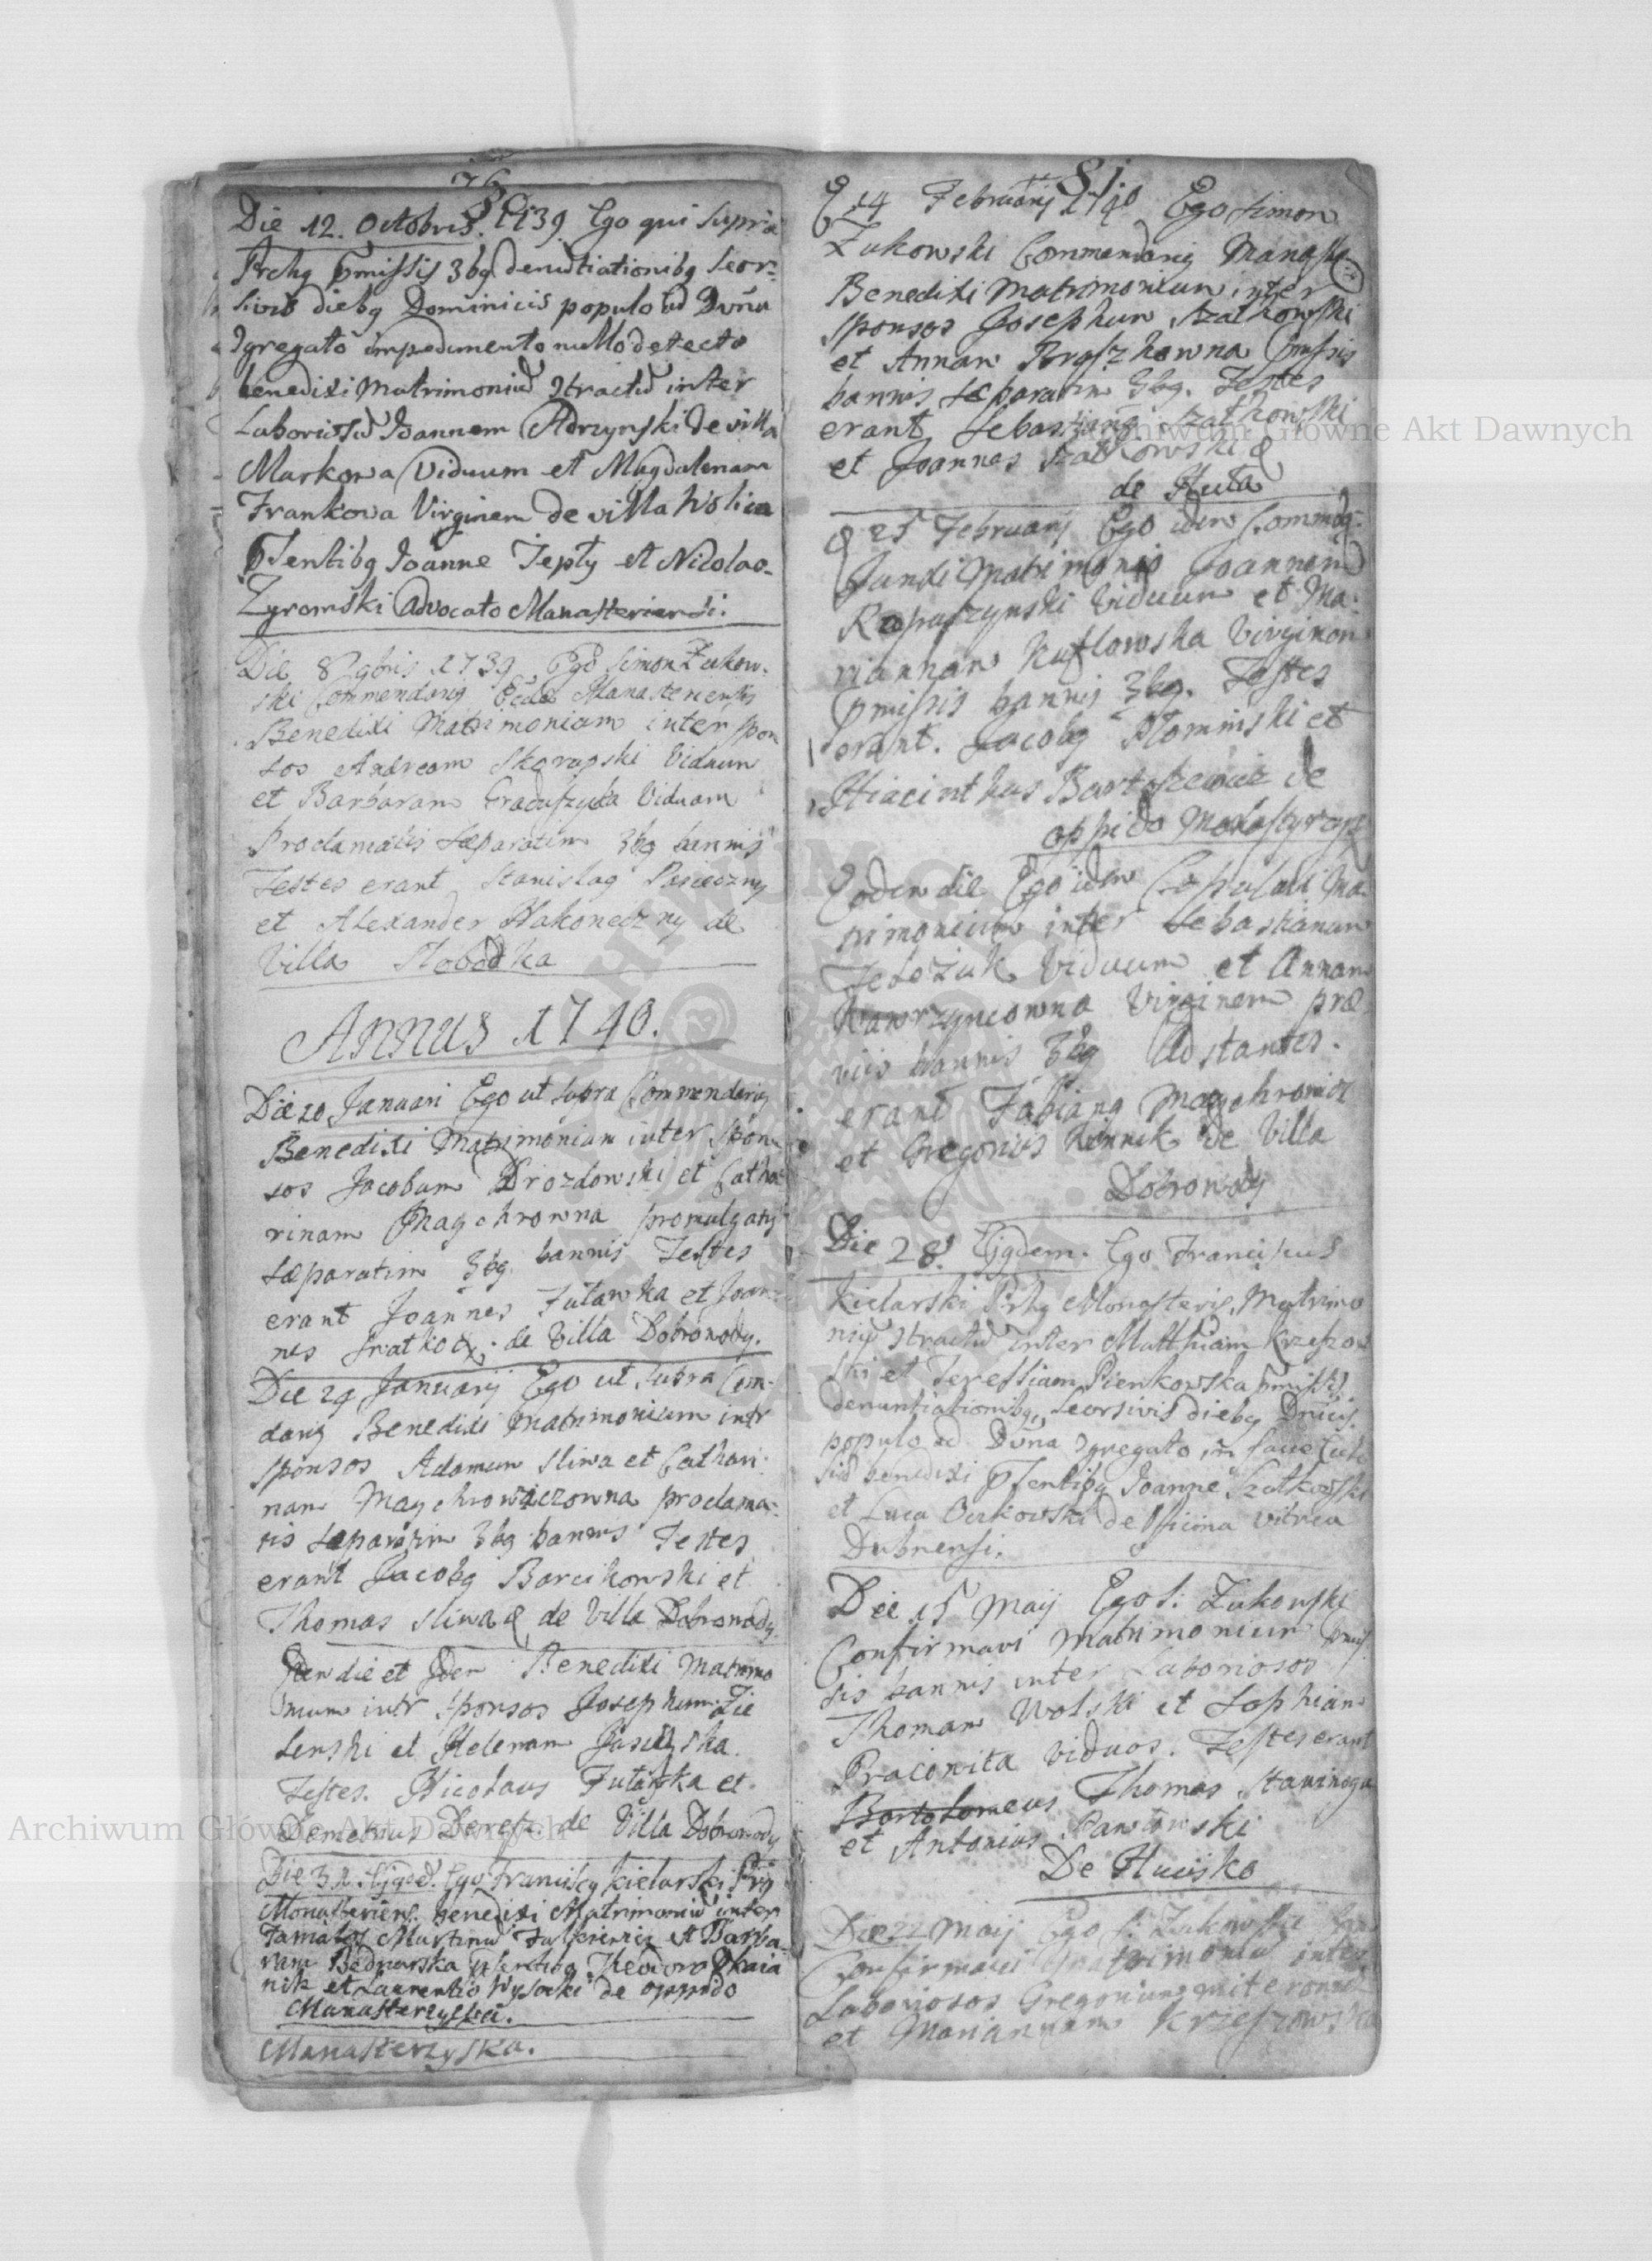 80
Die 12. Octobris. 1739 Ego qui supra
Prchg pmissis 3bg denutiationibg seor=
sivis diebg Dominicis populo ad Dvña
Ɔgregato impedimento nullo detecto
benedixi Matrimoniu Ɔtractu inter
Laboriosu Joannem Adrzynski de villa
Markowa Viduum et Magdalenam
Frankowa Virginem de villa Wolica
pɔsentibg Joanne Tepły et Nicolao
Zyromski Advocato Manasteriensi.
Die 8 9bris 1739 Ego Simon Żukow-
ski Commendarig Eccla Manasteriensis
Benedixi Matrimonium inter spon
sos Andream Skarupski Viduum
et Barbaram Viduam
Proclamatis separatim 3bg bannis
Testes erant Stanislag Pasieczny
et Alexander Nakoneczny de
Villa Slobodka
Annus 1740.
Die 20 Januari Ego ut supra Commendarig
Benedixi Matrimonium inter spon
sos Jacobum Drozdowski et Catha
rinam Maychrowna promulgatis
separatim 3bg bannis Testes
erant Joannes Futawka et Joan
nes de Villa Dobrowody.
Die 29 Januarij Ego ut supra Com-
darig Benedixi Matrimonium intr
sponsos Adamum Sliwa et Cathari
nam Maychrowiczowna proclama-
tis separatim 3bg bannis Testes
erant Jacobg Barcikowski et
Thomas Sliwa de Villa Dobrowody
die et Jdem Benedixi Matrimo
nium intr sponsos Josephum Zie
lenski et Helenam
Testes. Nicolaus et
Demetrius Deresz de Villa Dobrowody
Die 31. Ejgdē. Ego Franciscg Kielarski Prg
Monasteriens. benedixi Matrimoniu inter
Famatos Martinu et Barba-
ram Bednarska pɔsentibg Theodoro
nik et Laurentio Wysocki de oppido
Manasterzyska.
Manasterzyska.
81
14 Februarij 1740 Ego Simon
Żukowski Commendarig Manaste
Benedixi Matrimonium inter
sponsos Josephum Szatkowski
et Annam pmissis
bannis separatim 3bg. Testes
erant Sebastiang Szatkowski
et Joannes Szatkowski
de Huta
25 Februarij Ego idem Commdg
Junxi Matrimonio Joannem
Ropuszynski Viduum et Ma-
riannam Kozlowska Virginem
pmissis bannis 3bg. Testes
erant. Jacobg Slominski et
Hiacinthus Bartoszewicz de
oppido
Eodem die Ego idem Copulavi Ma
trimonium inter Sebastianum
Viduum et Annam
Wawrzyncowna Virginem præ
viis bannis 3bg Adstantes
erant Fabiang Maychrowicz
et Gregorius de Villa
Dobrowody
Die 28. Ejgdem. Ego Franciscus
Kielarski Prhg Monasteris. Matrimo
niu Ɔtractu inter Matthiam Krzeszow
ski et Teressiam Pienkowska pmissis
denuntiationibg, seorsivis diebg Dnicis.
populo ad Dvina Ɔgregato in facie Ecle
siæ benedixi pɔsentibg Joanne Szatkowski
et Luca de officina vitrea
Dubrensi.
Die 15 Maij Ego S: Żukowski
Confirmavi Matrimonium pmis
sis bannis inter Laboriosos
Thomam Wolski et Sophiam
Viduos. Testes erant
Bartolomeus Thomas
et Antonius Pawłowski
De Hucisko
Die 22 Maij Ego S: Żukowski
Confirmavi Matrimoniu inter
Laboriosos Gregorium
et Mariannam Krzeszowska
Archiwum Główne Akt Dawnych
Archiwum Główne Akt Dawnych